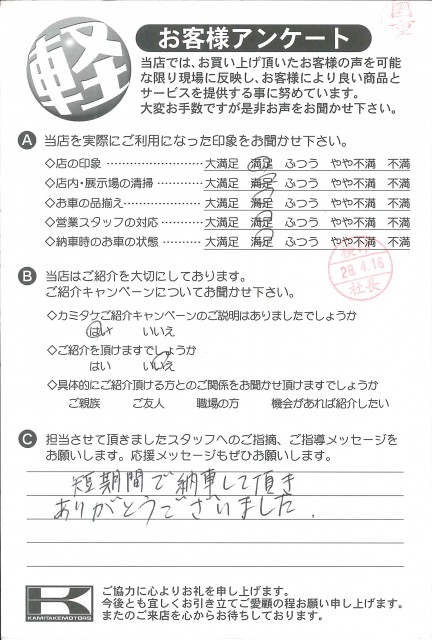 軽
お客様アンケート
当店では、お買い上げ頂いたお客様の声を可能
な限り現場に反映し、お客様により良い商品と
サービスを提供する事に努めています。
大変お手数ですが是非お声をお聞かせ下さい。
A 当店を実際にご利用になった印象をお聞かせ下さい。
◇店の印象 ………………… 大満足 満足 ふつう やや不満 不満
◇店内・展示場の清掃 ………… 大満足 満足 ふつう やや不満 不満
◇お車の品揃え ……………… 大満足 満足 ふつう やや不満 不満
◇営業スタッフの対応 ………… 大満足 満足 ふつう やや不満 不満
◇納車時のお車の状態 ………… 大満足 満足 ふつう やや不満 不満
28.4.16
社長
B 当店はご紹介を大切にしております。
ご紹介キャンペーンについてお聞かせ下さい。
◇カミタケご紹介キャンペーンのご説明はありましたでしょうか
はい いいえ
◇ご紹介を頂けますでしょうか
はい いいえ
◇具体的にご紹介頂ける方とのご関係をお聞かせ頂けますでしょうか
ご親族 ご友人 職場の方 機会があれば紹介したい
C 担当させて頂きましたスタッフへのご指摘、ご指導メッセージを
お願いします。応援メッセージもぜひお願いします。
短期間で納車して頂き
ありがとうございました.
K
KAMITAKEMOTORS
ご協力に心よりお礼を申し上げます。
今後とも宜しくお引き立てご愛顧の程お願い申し上げます。
またのご来店を心からお待ちしております。